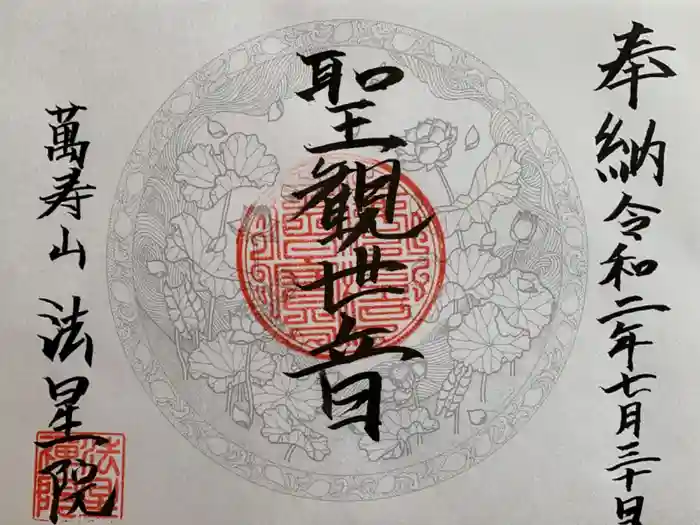 奉納令和二年七月三十日
聖観世音
萬寿山 法星院